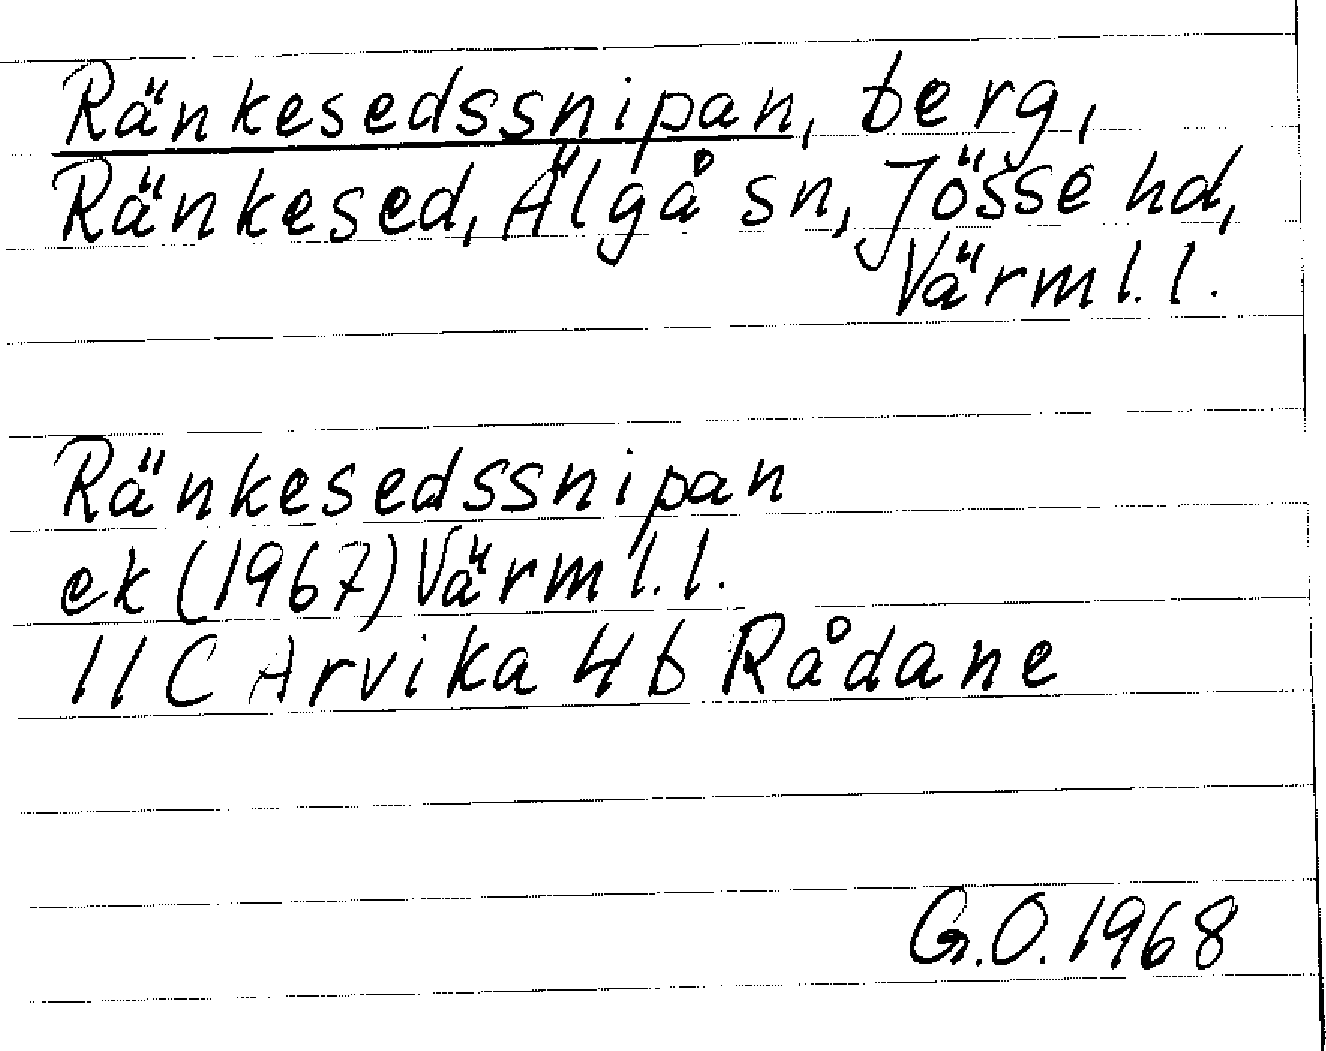 Ränkesedssnipan, berg,
Ränkesed, Älgå sn, Jösse hd,
Värml. l.
Ränkesedssnipan
ek (1967) Värml. l.
11 C Arvika 4b Rådane
G.O. 1968